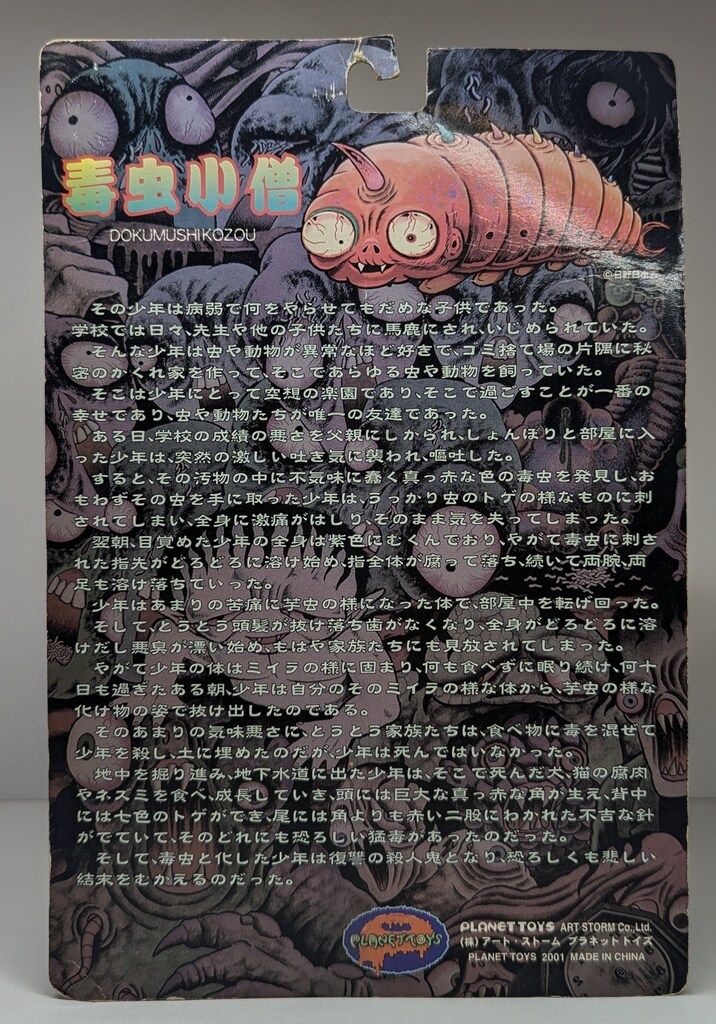 毒虫小僧
DOKUMUSHIKOZOU
©日野日出志
その少年は病弱で何をやらせてもだめな子供であった。
学校では日々、先生や他の子供たちに馬鹿にされ、いじめられていた。
そんな少年は虫や動物が異常なほど好きで、ゴミ捨て場の片隅に秘
密のかくれ家を作って、そこであらゆる虫や動物を飼っていた。
そこは少年にとって空想の楽園であり、そこで過ごすことが一番の
幸せであり、虫や動物たちが唯一の友達であった。
ある日、学校の成績の悪さを父親にしかられ、しょんぼりと部屋に入
った少年は、突然の激しい吐き気に襲われ、嘔吐した。
すると、その汚物の中に不気味に蠢く真っ赤な色の毒虫を発見し、お
もわずその虫を手に取った少年は、うっかり虫のトゲの様なものに刺
されてしまい、全身に激痛がはしり、そのまま気を失ってしまった。
翌朝、目覚めた少年の全身は紫色にむくんでおり、やがて毒虫に刺さ
れた指先がどろどろに溶け始め、指全体が腐って落ち、続いて両腕、両
足も溶け落ちていった。
少年はあまりの苦痛に芋虫の様になった体で、部屋中を転げ回った。
そして、とうとう頭髪が抜け落ち歯がなくなり、全身がどろどろに溶
けだし悪臭が漂い始め、もはや家族たちにも見放されてしまった。
やがて少年の体はミイラの様に固まり、何も食べずに眠り続け、何十
日も過ぎたある朝、少年は自分のそのミイラの様な体から、芋虫の様な
化け物の姿で抜け出したのである。
そのあまりの気味悪さに、とうとう家族たちは、食べ物に毒を混ぜて
少年を殺し、土に埋めたのだが、少年は死んではいなかった。
地中を掘り進み、地下水道に出た少年は、そこで死んだ犬、猫の腐肉
やネズミを食べ、成長していき、頭には巨大な真っ赤な角が生え、背中
には七色のトゲができ、尾には角よりも赤い二股にわかれた不吉な針
がでていて、そのどれにも恐ろしい猛毒があったのだった。
そして、毒虫と化した少年は復讐の殺人鬼となり、恐ろしくも悲しい
結末をむかえるのだった。
PLANET TOYS
PLANET TOYS ART STORM Co., Ltd.
(株)アート・ストーム プラネットトイズ
PLANET TOYS 2001 MADE IN CHINA